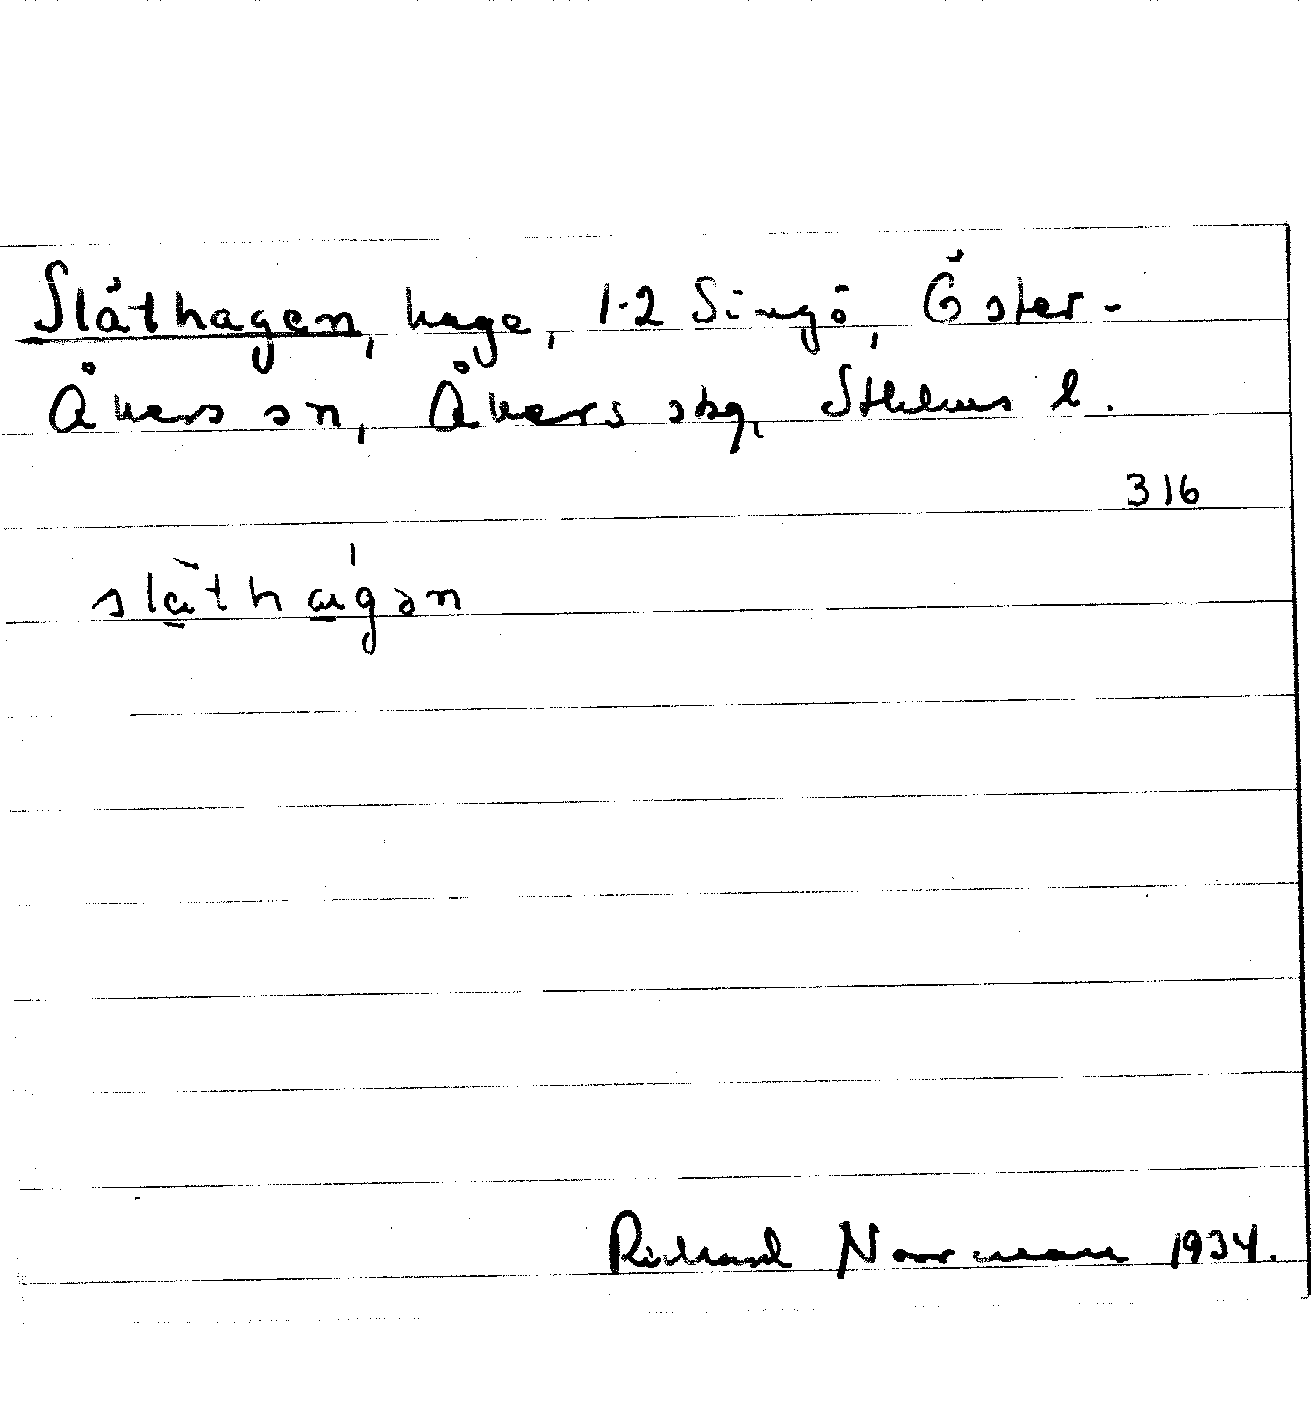 Slåthagen, hage, 1-2 Singö, Öster-
Åkers sn, Åkers skg, Sthlms l.
316
slåthagən
Richard Norrman 1934.